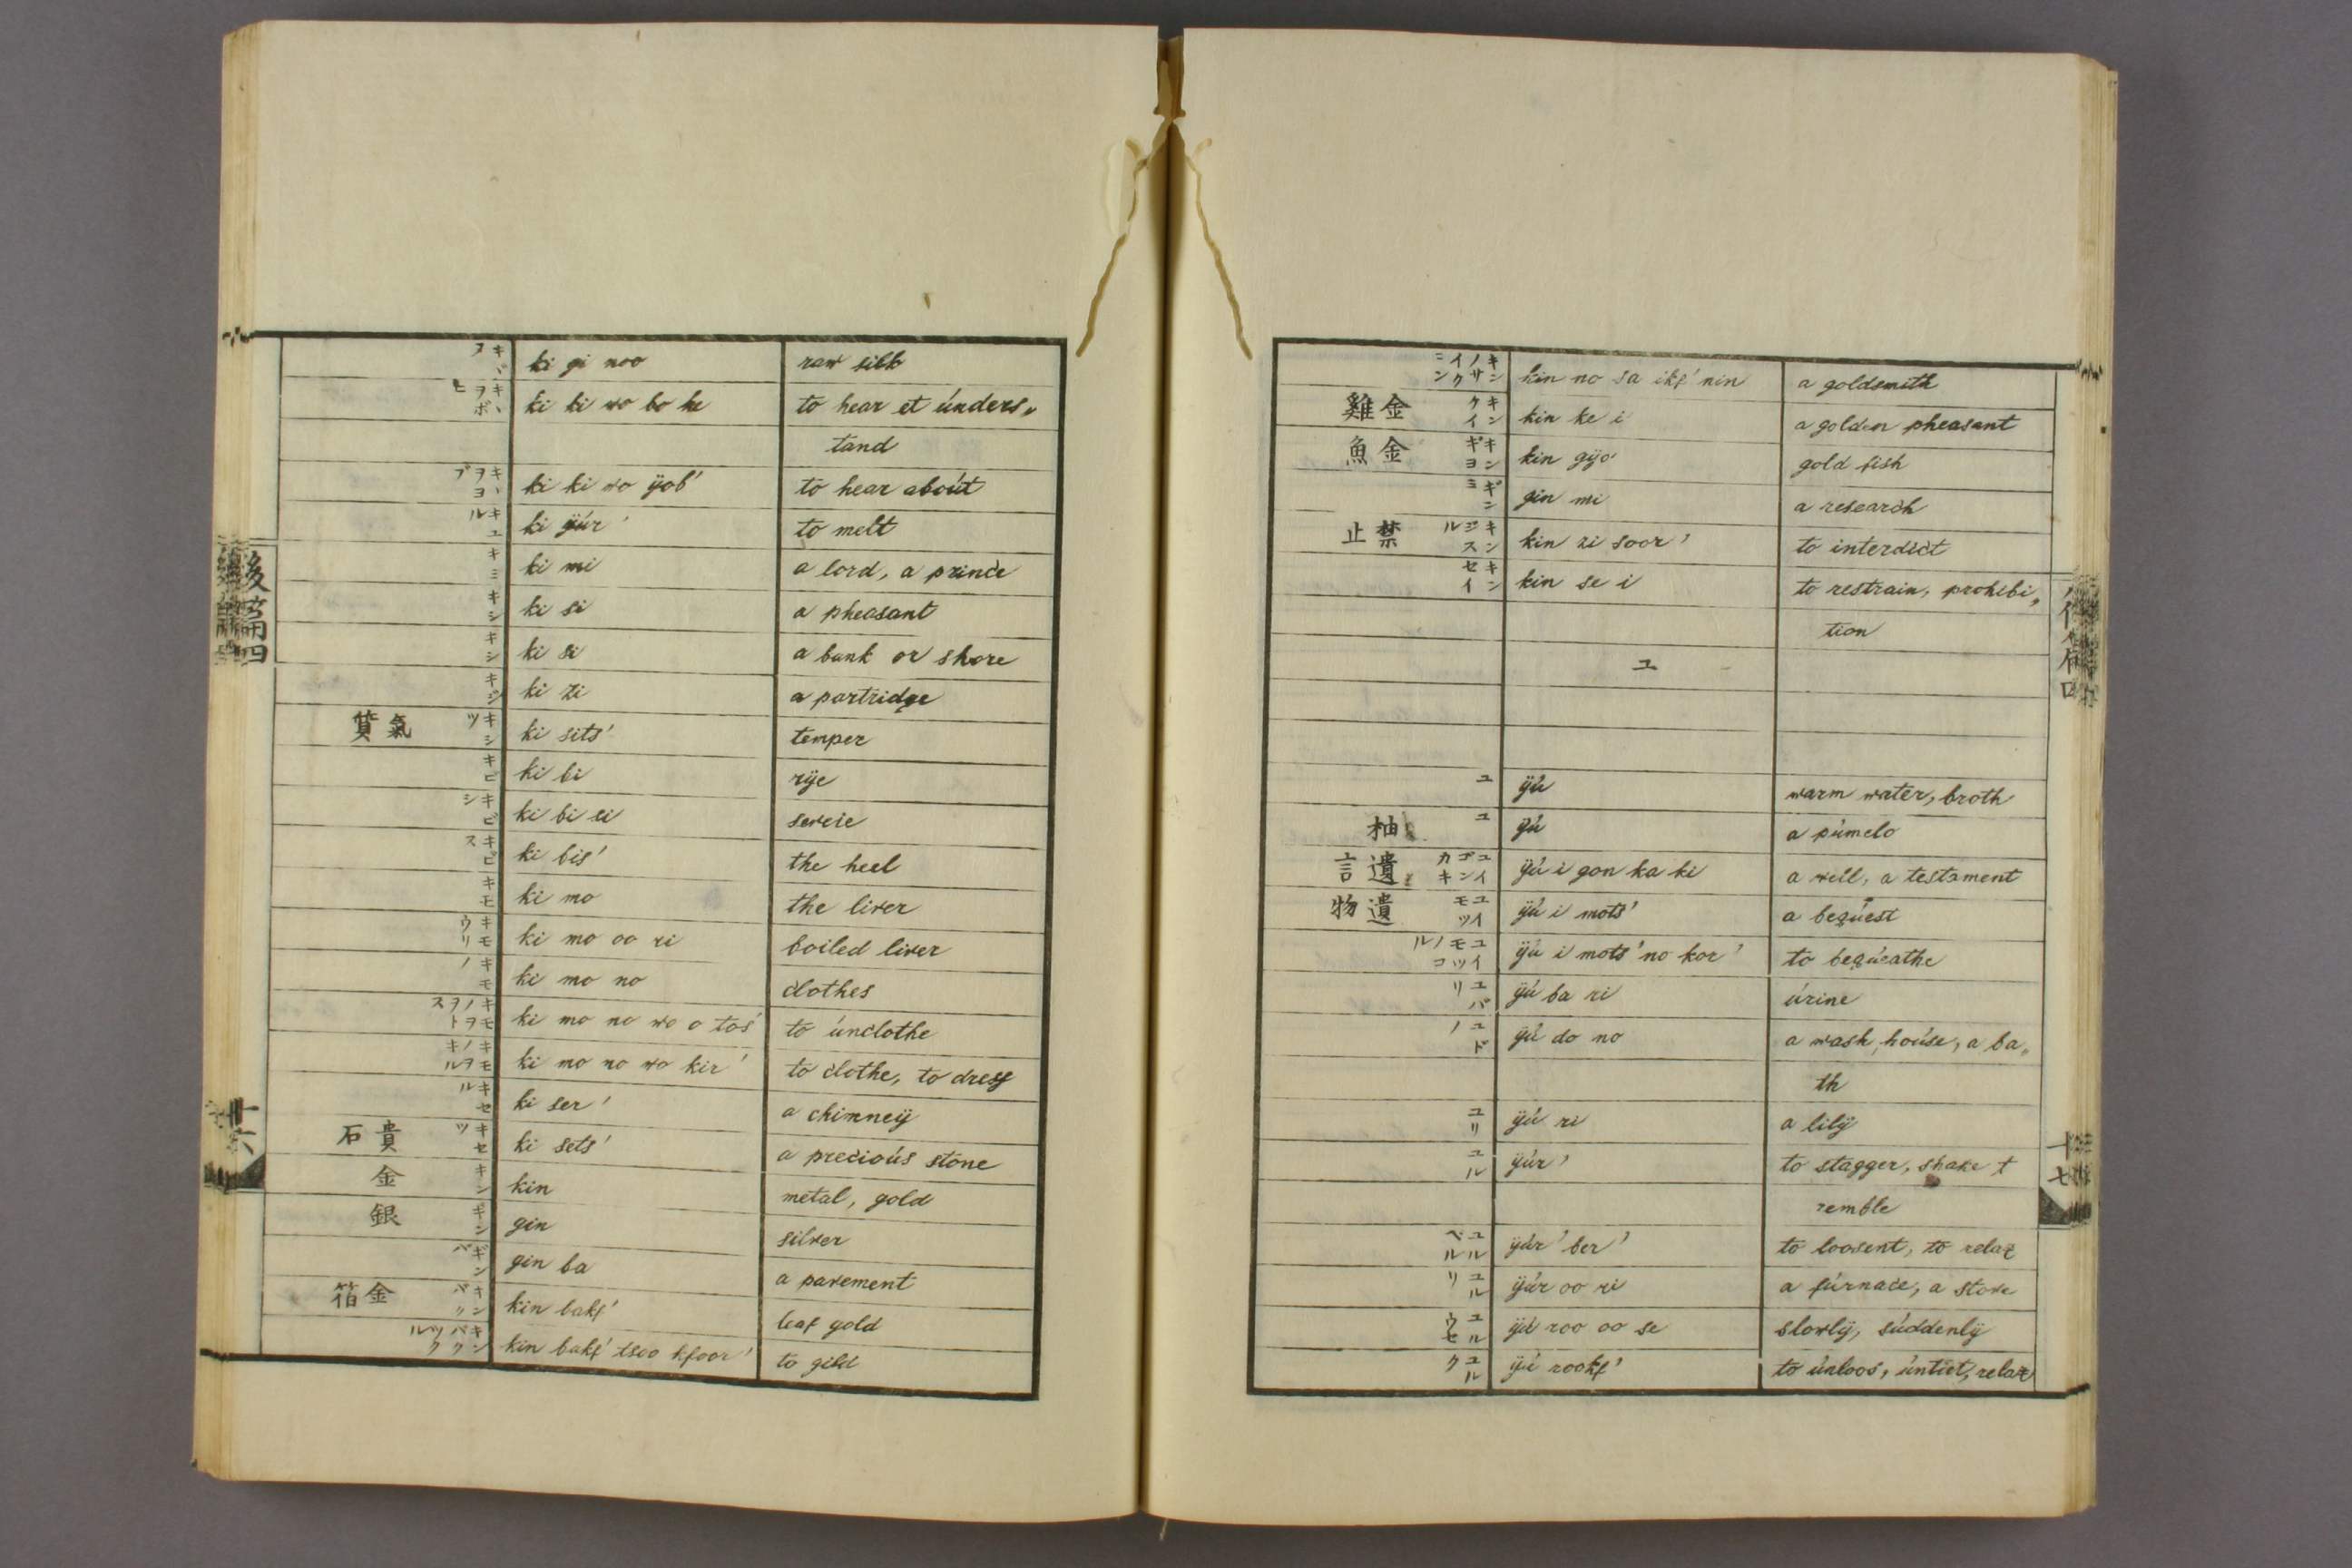 ki gi noo raw silk
ki ki wo bo he to hear et únders„
tand
ki ki wo ÿob' to hear aboút
ki ÿúr' to melt
キミ ki mi a lord, a prince
キシ ki si a pheasant
キシ ki si a bank or shore
キジ ki zi a partridge
氣質 キシツ ki sits' temper
キビ ki bi rÿe
キビシ ki bi si
キビス ki bis' the heel
キモ ki mo the liver
キモウリ ki mo oo ri boiled liver
キモノ ki mo no clothes
キモノヲヲトス ki mo no wo o tos' to únclothe
キモノヲキル ki mo no wo kir' to clothe, to dress
キセル ki ser' a chimneÿ
貴石 キセツ ki sets' a precioús stone
金 キン kin metal, gold
銀 ギン gin silver
ギンバ gin ba a pavement
金箔 kin bakf' leaf gold
kin bakf' tsoo kfoor' to gild
後篇四
十六
キンノサイクニン kin no sa ikf' nin a goldsmith
金雞 キンケイ kin ke i a golden pheasant
金魚 キンギヨ kin gÿo gold fish
ギンミ gin mi a research
禁止 キンジスル kin zi soor' to interdict
キンセイ kin se i to restrain, prohibi„
tion
ユ
ユ ÿú warm water, broth
柚 ユ ÿú a púmelo
遺言 ユイゴンカキ ÿú i gon ka ki a will, a testament
遺物 ユイモツ ÿú i mots' a beqúest
ユイモツノコル ÿú i mots' no kor' to beqúeathe
ユバリ ÿú ba ri úrine
ユドノ ÿú do no a wash, hoúse, a ba„
th
ユリ ÿú ri a lilÿ
ユル ÿúr' to stagger, shake t
remble
ユルベル ÿúr' ber' to loosent, to relax
ユルリ ÿúr oo ri a fúrnace, a stove
ユルウセ ÿú roo oo se slowlÿ, súddenlÿ
ユルク ÿú rookf' to únloos, úntiet, relax
十七